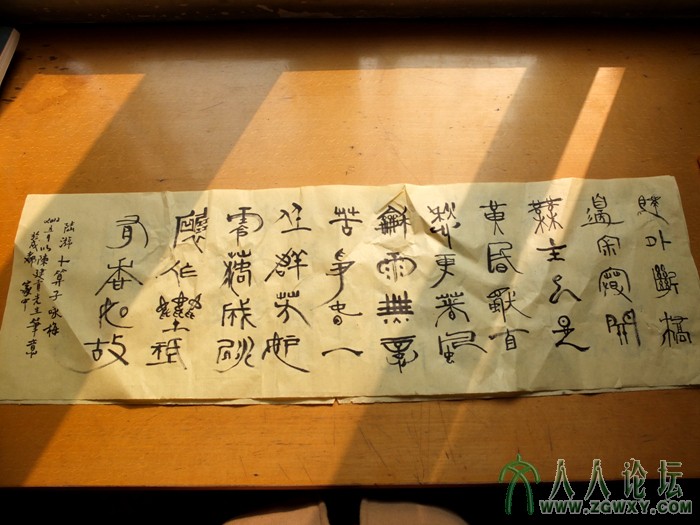 驛外斷橋
邊寂寞開
無主已是
黄昏獨自
愁更著風
龢雨無意
苦争春一
任群芳妒
零落成泥
碾作塵祇
有香如故
陆游卜算子咏梅
先生筆意
於成都
人人论坛
www.zgwxy.com